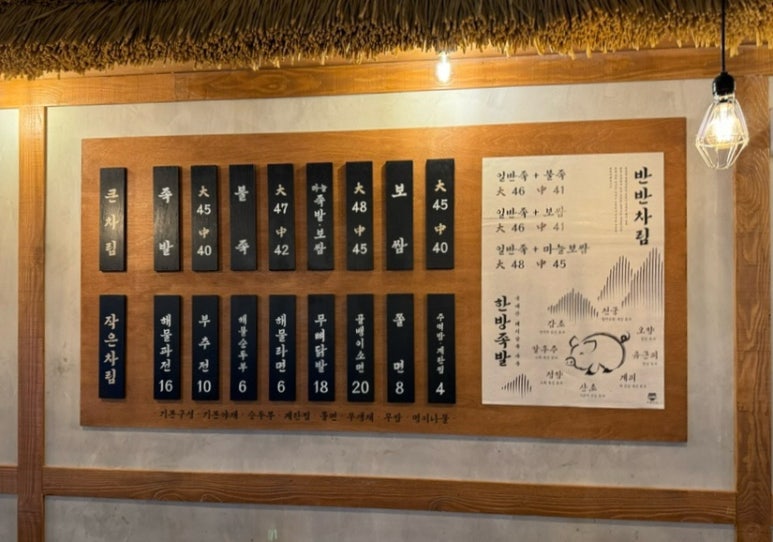 큰차림
족발
大 45 中 40
불족
大 47 中 42
마늘 족발·보쌈
大 48 中 45
보쌈
大 45 中 40
작은차림
해물파전 16
부추전 10
해물순두부 6
해물라면 6
무뼈닭발 18
골뱅이소면 20
쫄면 8
주먹밥·계란찜 4
기본구성·기본야채·순두부·계란찜·쫄면·무생채·무쌈·
반반차림
일반족 + 불족
大 46 中 41
일반족 + 보쌈
大 46 中 41
일반족 + 마늘보쌈
大 48 中 45
한방족발
천궁
감초
오향
월계수
육군피
정향
계피
산초